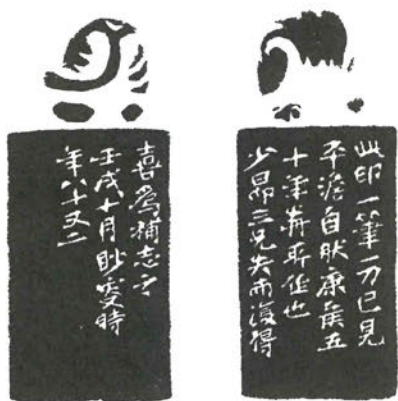 此印一筆一刀已見
平澹自肰康侯五
十年前所作也
少昂三兄失而復得
喜為補志之
壬戌十月眇叟時
年八十又二